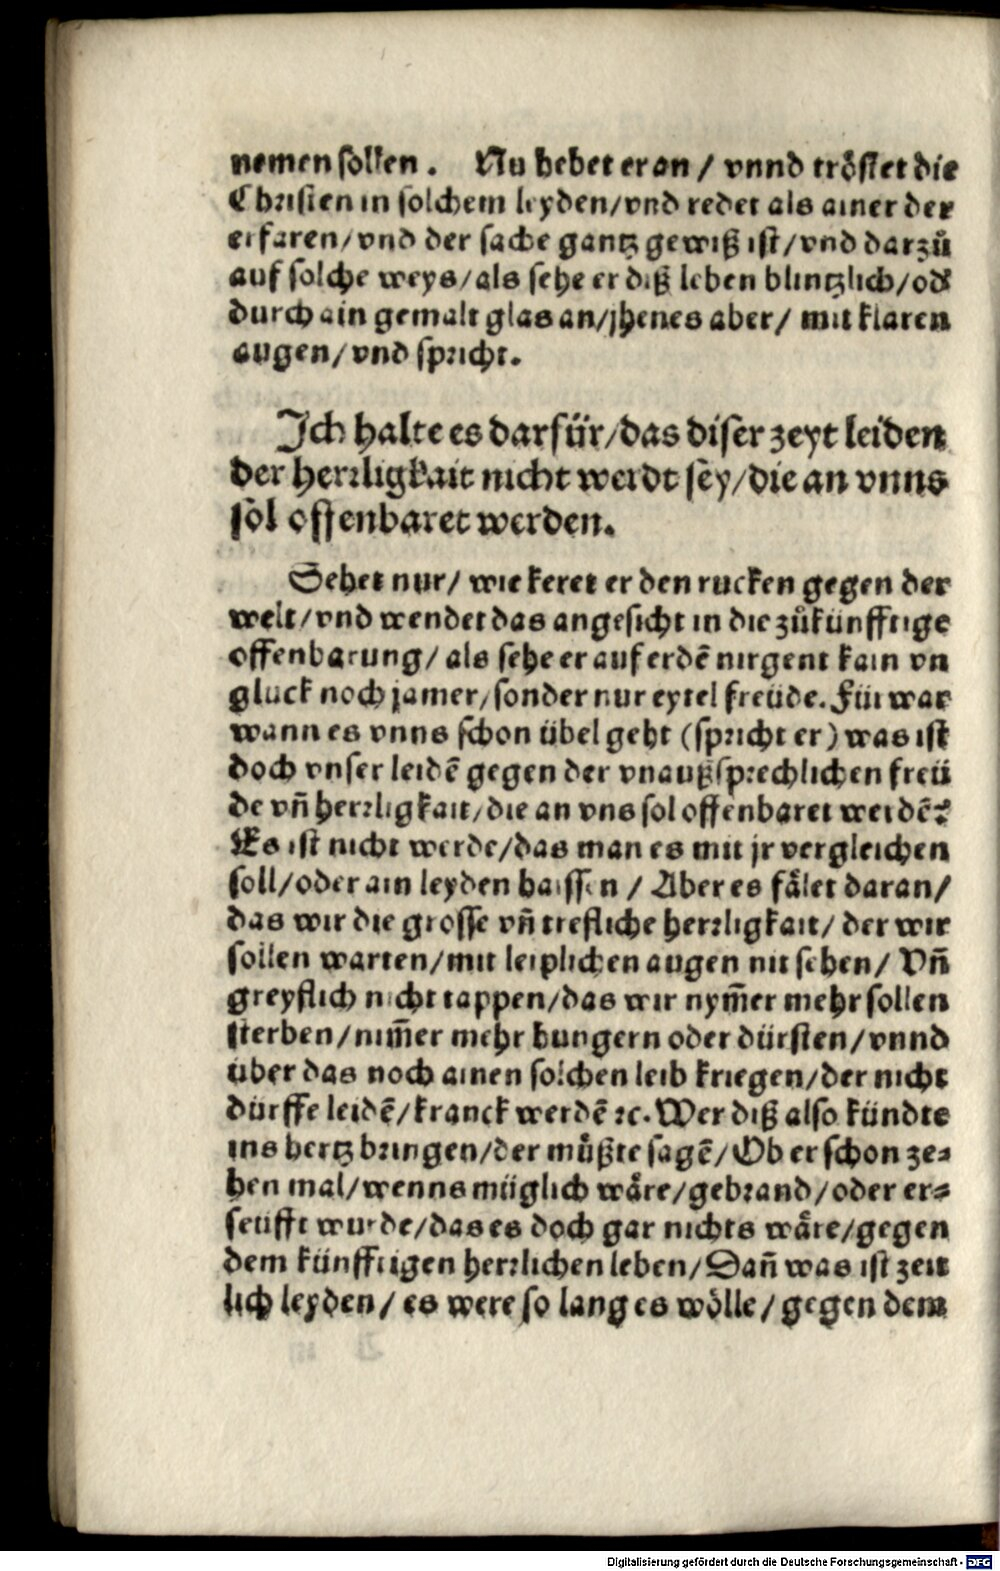 nemen sollen. Nu hebet er an / vnnd tröstet die
Christen in solchem leyden/vnd redet als ainer der
erfaren/vnd der sache gantz gewiß ist/vnd darzů
auf solche weys/als sehe er diß leben blintzlich/od
durch ain gemalt glas an/jhenes aber/ mit klaren
augen/vnd spricht.
Ich halte es darfür/das diser zeyt leiden
der herrligkait nicht werdt sey/die an vnns
sol offenbaret werden.
Sehet nur/ wie keret er den rucken gegen der
welt/vnd wendet das angesicht in die zůkünfftige
offenbarung/ als sehe er auf erdē nirgent kain vn
gluck noch jamer/sonder nur eytel freüde. Für war
wann es vnns schon übel geht (spricht er) was ist
doch vnser leidē gegen der vnaußsprechlichen freü
de vn̄ herrligkait/die an vns sol offenbaret werdē?
Es ist nicht werde/das man es mit jr vergleichen
soll/oder ain leyden haissen / Aber es fälet daran/
das wir die grosse vn̄ trefliche herrligkait/ der wir
sollen warten/mit leiplichen augen nit sehen/ Vn̄
greyflich nicht tappen/das wir nym̄er mehr sollen
sterben/nim̄er mehr hungern oder dürsten/vnnd
über das noch ainen solchen leib kriegen/der nicht
dürffe leidē/kranck werdē ꝛc. Wer diß also kündte
ins hertz bringen/der můßte sagē/Ob er schon ze⸗
hen mal/wenns müglich wäre/gebrand/oder er⸗
seüfft wurde/das es doch gar nichts wäre/gegen
dem künfftigen herrlichen leben/Dan̄ was ist zeit
lich leyden/ es were so lang es wölle/gegen dem
Digitalisierung gefördert durch die Deutsche Forschungsgemeinschaft - DFG